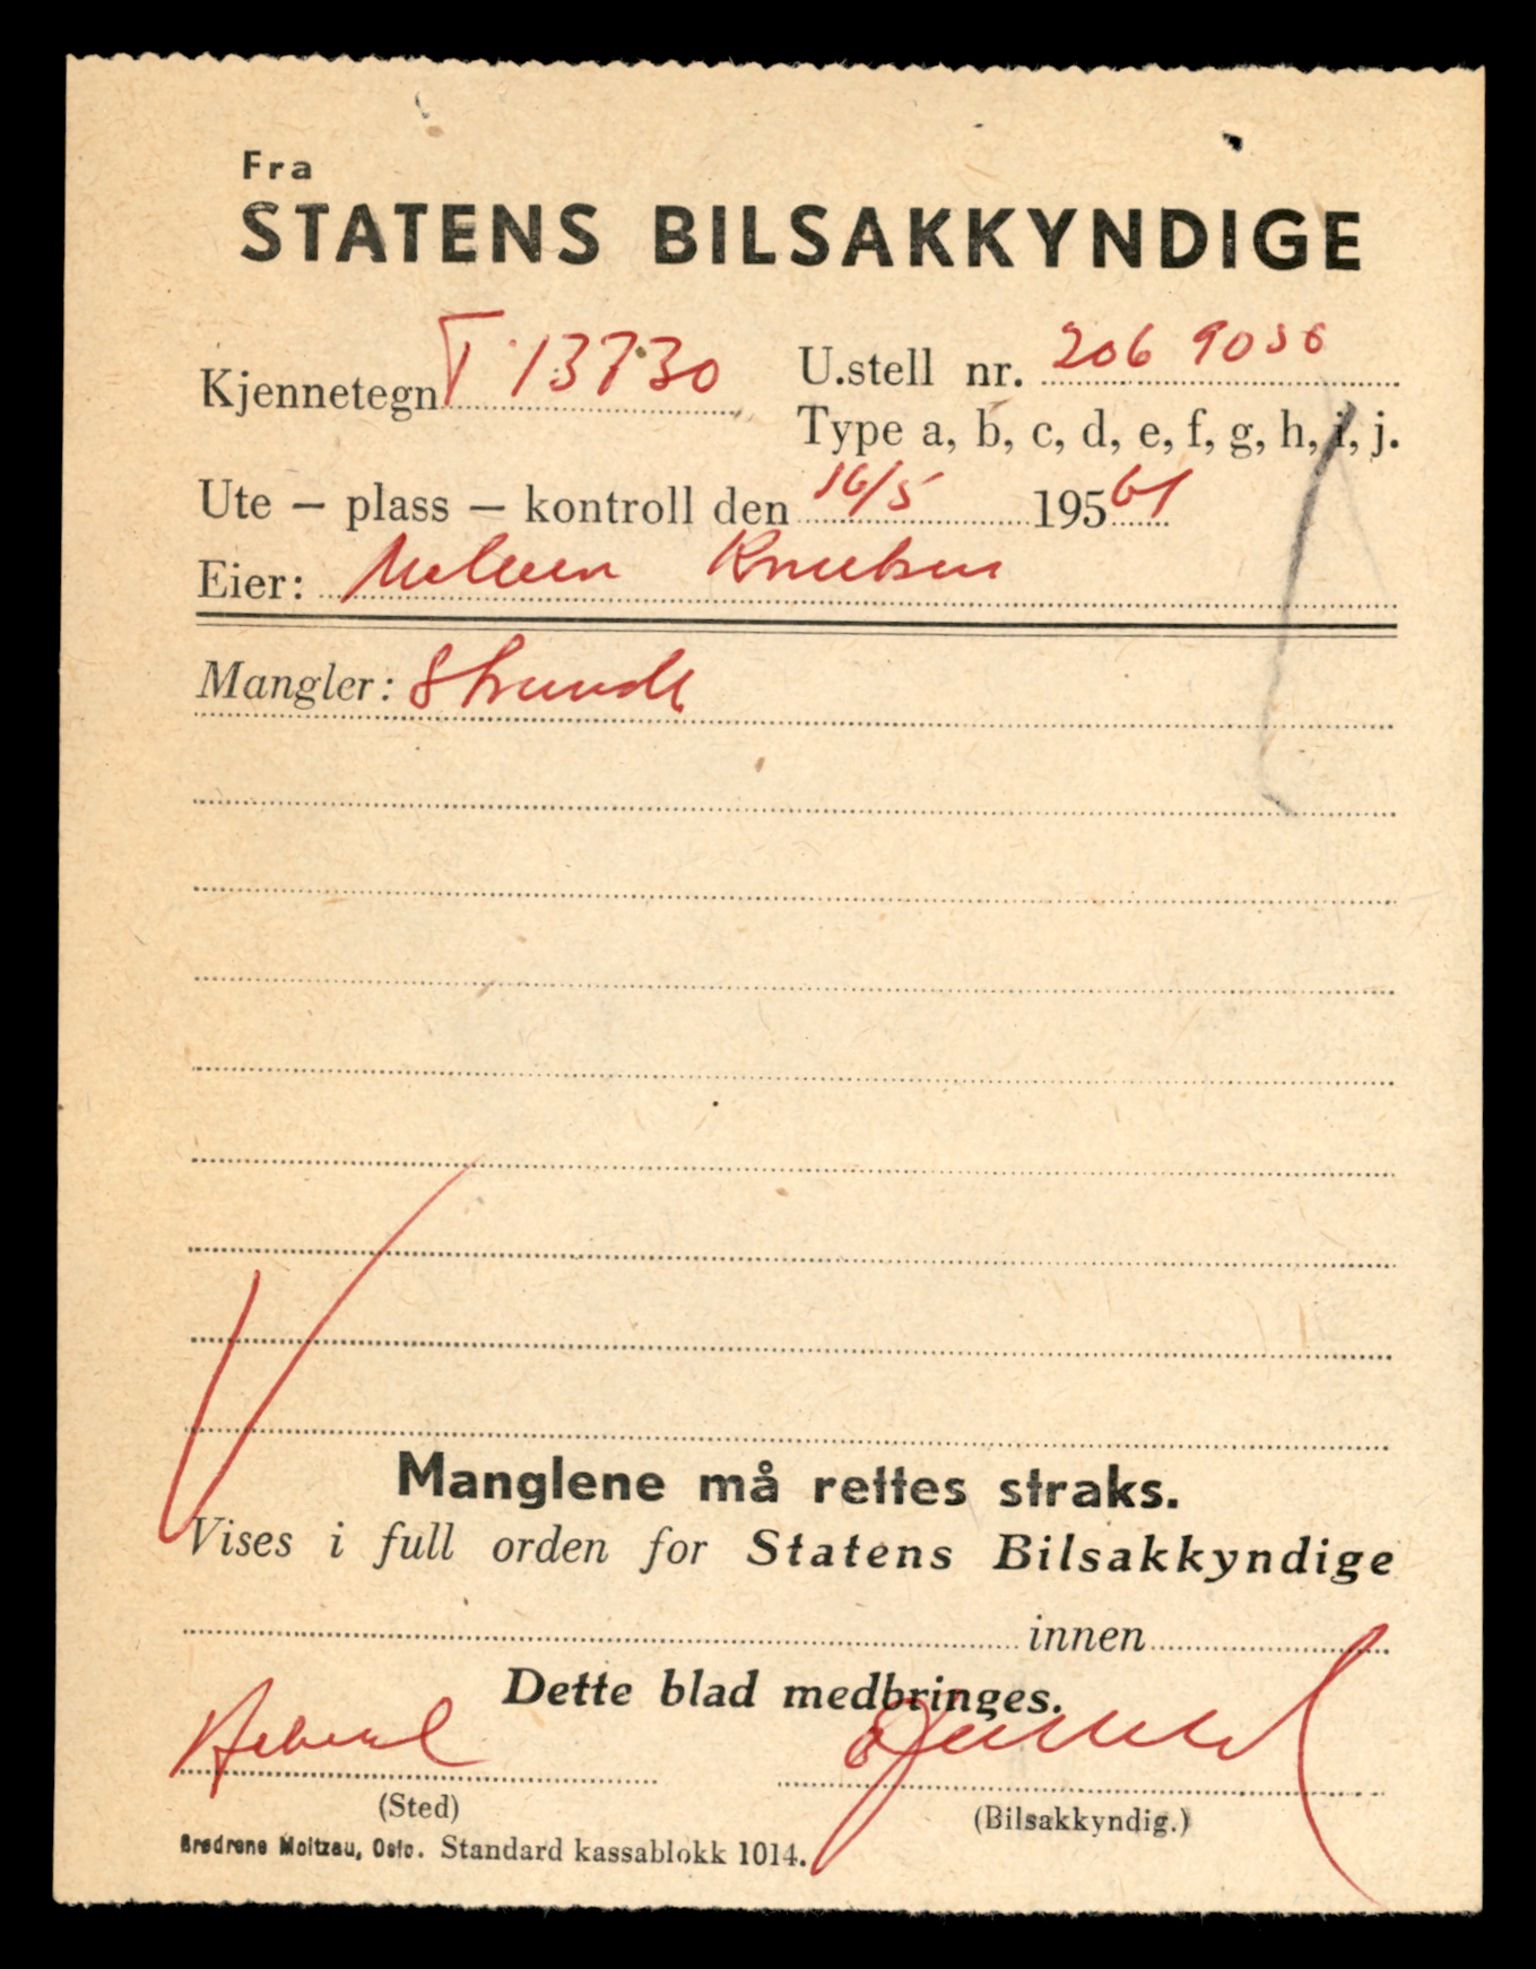 Fra
STATENS BILSAKKYNDIGE
Kjennetegn T 13730
U.stell nr. 206 9056
Type a, b, c, d, e, f, g, h, i, j.
Ute — plass — kontroll den 16/5 195 61
Eier: Knutsen
Mangler:
Manglene må rettes straks.
Vises i full orden for Statens Bilsakkyndige
innen
Dette blad medbringes.
(Sted)
(Bilsakkyndig.)
Brødrene Moltzau, Oslo. Standard kassablokk 1014.